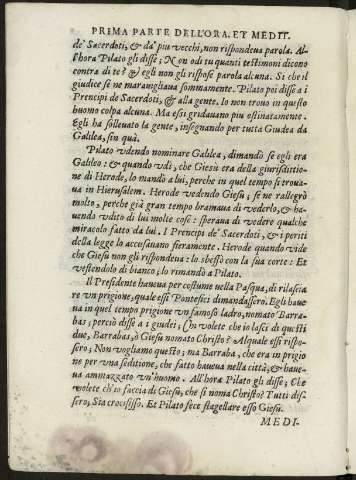 PRIMA PARTE DELL'ORA. ET MEDIT.
de' Sacerdoti, & da' piu vecchi, non rispondeua parola. Al-
l'hora Pilato gli disse; Non odi tu quanti testimoni dicono
contra di te? & egli non gli rispose parola alcuna. Si che il
giudice se ne marauigliaua sommamente. Pilato poi disse a i
Prencipi de Sacerdoti, & alla gente. Io non trouo in questo
huomo colpa alcuna. Ma essi gridauano piu ostinatamente.
Egli ha solleuato la gente, insegnando per tutta Giudea da
Galilea, fin quà.
Pilato vdendo nominare Galilea, dimandò se egli era
Galileo: & quando vdì, che Giesù era della giurisdittio-
ne di Herode, lo mandò a lui, perche in quel tempo si troua-
ua in Hierusalem. Herode vedendo Giesù; se ne rallegrò
molto, perche già gran tempo bramaua di vederlo, & ha-
uendo vdito di lui molte cose: speraua di vedere qualche
miracolo fatto da lui. I Prencipi de' Sacerdoti, & i periti
della legge lo accusauano fieramente. Herode quando vide
che Giesù non gli rispondeua: lo sbeffò con la sua corte: Et
vestendolo di bianco, lo rimandò a Pilato.
Il Presidente haueua per costume nella Pasqua, di rilascia
re vn prigione, quale essi Pontefici dimandassero. Egli haue-
ua in quel tempo prigione vn famoso ladro, nomato Barra-
bas; perciò disse a i giudei; Chi volete che io lasci di questi
due, Barrabas, ò Giesù nomato Christo? Al quale essi rispo-
sero; Non vogliamo questo; ma Barraba, che era in prigio
ne per vna seditione, che fatto haueua nella città, & haue-
ua ammazzato vn'huomo. All'hora Pilato gli disse; Che
volete ch'io faccia di Giesù, che si noma Christo? Tutti dis-
sero; Sia crocifisso. Et Pilato fece flagellare esso Giesù.
MEDI-